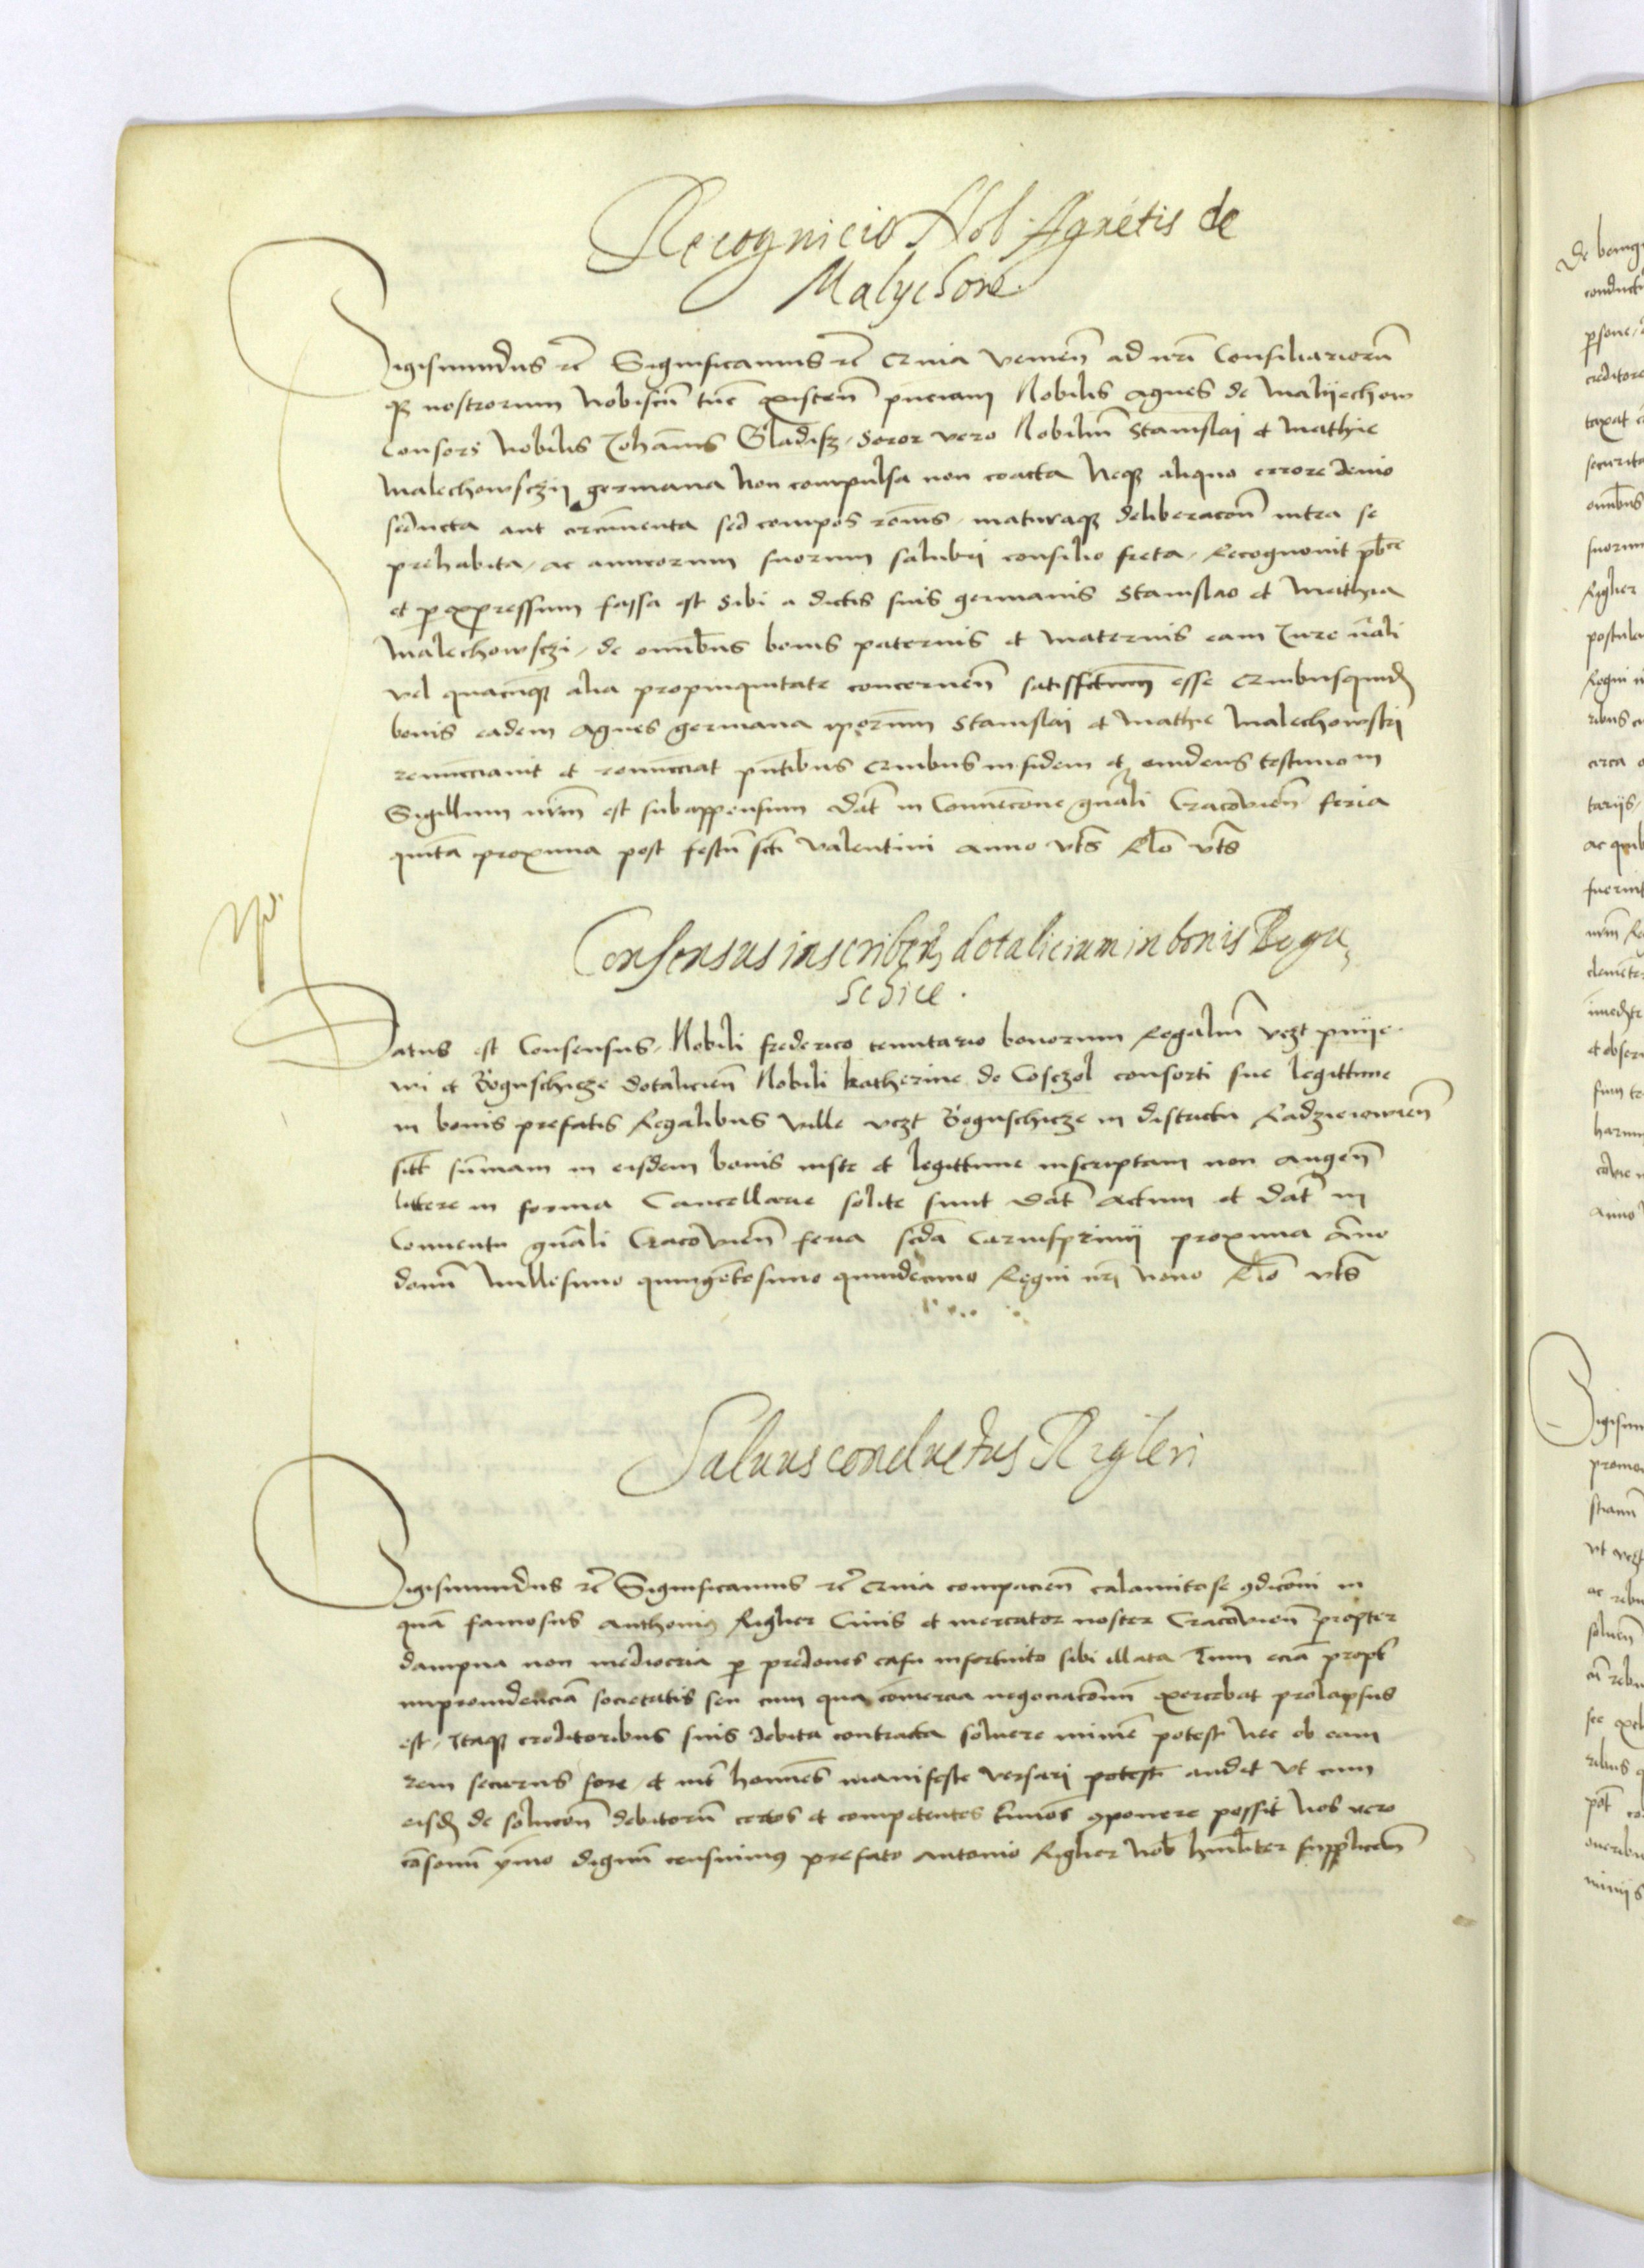 Recognicio Nob Agnetis de
Malyehow
Sigismundus rc̄ Significamus rc̄ Quia venien̄ ad nrā Consiliariorū
qȝ nostrorum nobiscū tūc existen̄ pn̄ciam Nobilis Agnes de Malyechow
Consors Nobilis Johan̄is Gladisz, Soror vero Nobiliū Stanislai et Mathie
Malechowsczij germana Non compulsa non coacta Neqȝ aliquo errore devio
seducta aut circūventa sed compos rōnis, maturaqȝ deliberacōn̄ intra se
prehabita, ac amicorum suorum salubri consilio freta, Recognovit pb̄ce
et p expressum fassa est Sibi a dictis suis germanis Stanislao et Mathia
Malechowsczi, de omībus bonis paternis et maternis eam Jure nāli
vel quacūqȝ alia propinquitate concernen̄ satisfctum̄ esse Quibusquidȝ
bonis eadem Agnes germana ipsorum̄ Stanislai et Mathie Malechowskj
renunc̄ciavit et renunc̄ciat pn̄tibus Quibus in fidem et evidens testimom
Sigillum nrm̄ est subappensum Dat̄ in Convēcōne gn̄ali Cracovien̄ feria
quīta proxima post festū scti Valentini Anno vt̄s Rlō vt̄s
Consensus inscriben̄ dotalicium in bonis Bogu
schice.
Datus est Consensus, Nobili frederico tenutario bonorum Regaliū vczt pnije
wi et Boguschicze dotalicien̄ Nobili katherine de Cosczol consorti sue legittime
in bonis prefatis Regalibus ville vczt Boguschicze in districtu Radzieiowien̄
sitt̄ sūmam in eisdem bonis iuste et legittime inscriptam non augen̄
littere in forma Cancellarie solite sunt dat̄ Actum et dat̄ in
Conventu gn̄ali Cracovien̄ feria scdā Carnisprivij proxima Āno
domī Millesimo quingētesimo quindecimo Regni nrj Nono Rlō vt̄s
Saluusconductus Rigleri
Sigismundus rc̄ Significamus rc̄ Quia compacien̄ calamitose ꝯdicōni in
quā famosus Anthoniꝯ Righer Civis et mercator noster Cracovien̄ propter
dampna non mediocria p predones casu infortuito sibi illata Tum eciā propt̄
improvidenciā societatis seu cum qua cōmercia negociacōnū exercebat prolapsus
est, Itaqȝ creditoribus suis debita contracta solvere mīime potest Nec ob eam
rem securus fore, et int̄ homīnes manifeste versari potest audet vt cum
eisdȝ de solucōn̄ debitorū certos et competentes t̄minos ꝯponere possit Nos vero
cōsonū ymo dignū censuimꝯ prefato Antonio Righer Nob̄ hūiliter supplicān̄